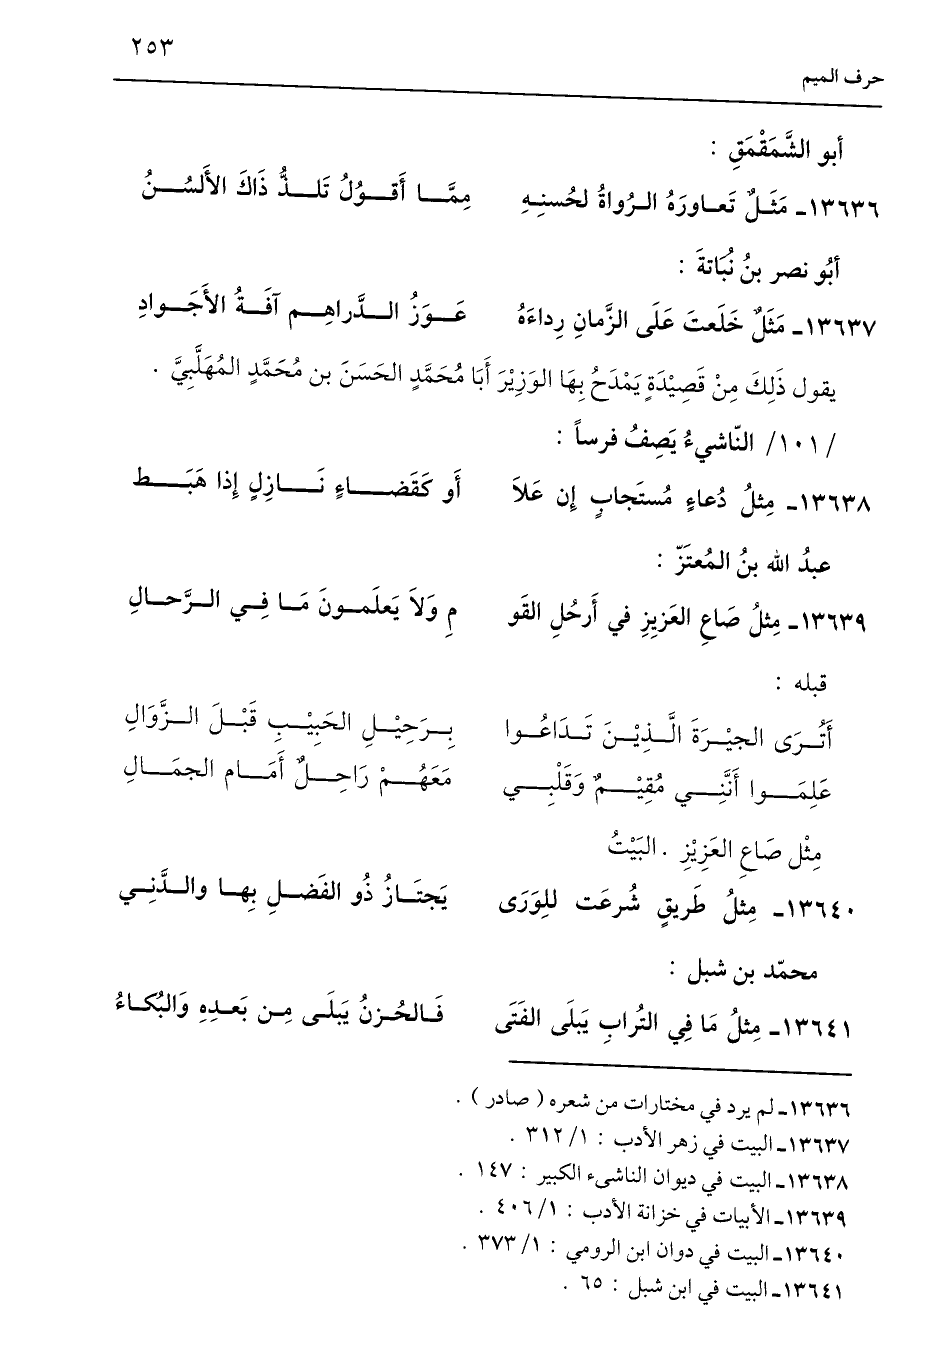 ٢٥٣
حرف الميم
أبو الشَّمَقْمَقِ :
١٣٦٣٦ـ مَثَلٌ تَعـاورَهُ الـرُواةُ لحُسنِـهِ مِمَّـــا أَقـــوُلُ تَلـــذُّ ذَاكَ الأَلسُـــنُ
أبُو نصر بنُ نُبَاتةَ :
١٣٦٣٧ـ مَثَلٌ خَلَعتَ عَلَى الزَّمانِ رِداءَهُ عَـــوَزُ الـــدَّراهِـــم آفَـــةُ الأَجَـــوادِ
يقول ذَلِكَ مِنْ قَصِيْدَةٍ يَمْدَحُ بِهَا الوَزِيْرَ أَبَا مُحَمَّدٍ الحَسَنَ بن مُحَمَّدٍ المُهَلَّبِيَّ .
/ ١٠١/ النّاشيءُ يَصِفُ فرساً :
١٣٦٣٨ـ مِثلُ دُعاءٍ مُستَجابٍ إن عَلاَ أَو كَقَضـــاءٍ نَـــازِلٍ إذا هَبَـــط
عبدُ الله بنُ المُعتَزّ :
١٣٦٣٩ـ مِثلُ صَاعِ العَزِيزِ في أَرحُلِ القَو مِ وَلاَ يَعلَمـونَ مَـا فِـي الـرَّحـالِ
قبله :
أَتُـرَى الجيْـرَةَ الَّـذِيْـنَ تَـدَاعُـوا بِـرَحِيْـلِ الحَبِيْـبِ قَبْـلَ الـزَّوَالِ
عَلِمَـــوا أَنَّنِـــي مُقِيْـــمٌ وَقَلْبِـــي مَعَهُـــمْ رَاحِـــلٌ أَمَـــام الجمَـــالِ
مِثْل صَاعِ العَزِيْزِ . البَيْتُ
١٣٦٤٠ـ مِثلُ طَريقٍ شُرعَت للِوَرَى يَجتَـازُ ذُو الفَضـلِ بِهـا والـدَّنِـي
محمّد بن شبل :
١٣٦٤١ـ مِثلُ مَا فِي التُرابِ يَبلَى الفَتَى فَـالحُـزنُ يَبلَـى مِـن بَعـدِهِ وَالبُكـاءُ
١٣٦٣٦ـ لم يرد في مختارات من شعره ( صادر ) .
١٣٦٣٧ـ البيت في زهر الأدب : ١/ ٣١٢ .
١٣٦٣٨ـ البيت في ديوان الناشىء الكبير : ١٤٧ .
١٣٦٣٩ـ الأبيات في خزانة الأدب : ١/ ٤٠٦ .
١٣٦٤٠ـ البيت في دوان ابن الرومي : ١/ ٣٧٣ .
١٣٦٤١ـ البيت في ابن شبل : ٦٥ .